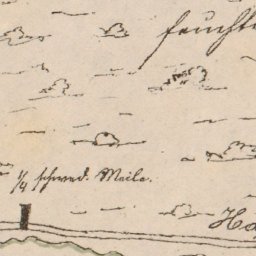 feucht
1/4 schwed. Meile.
Ha